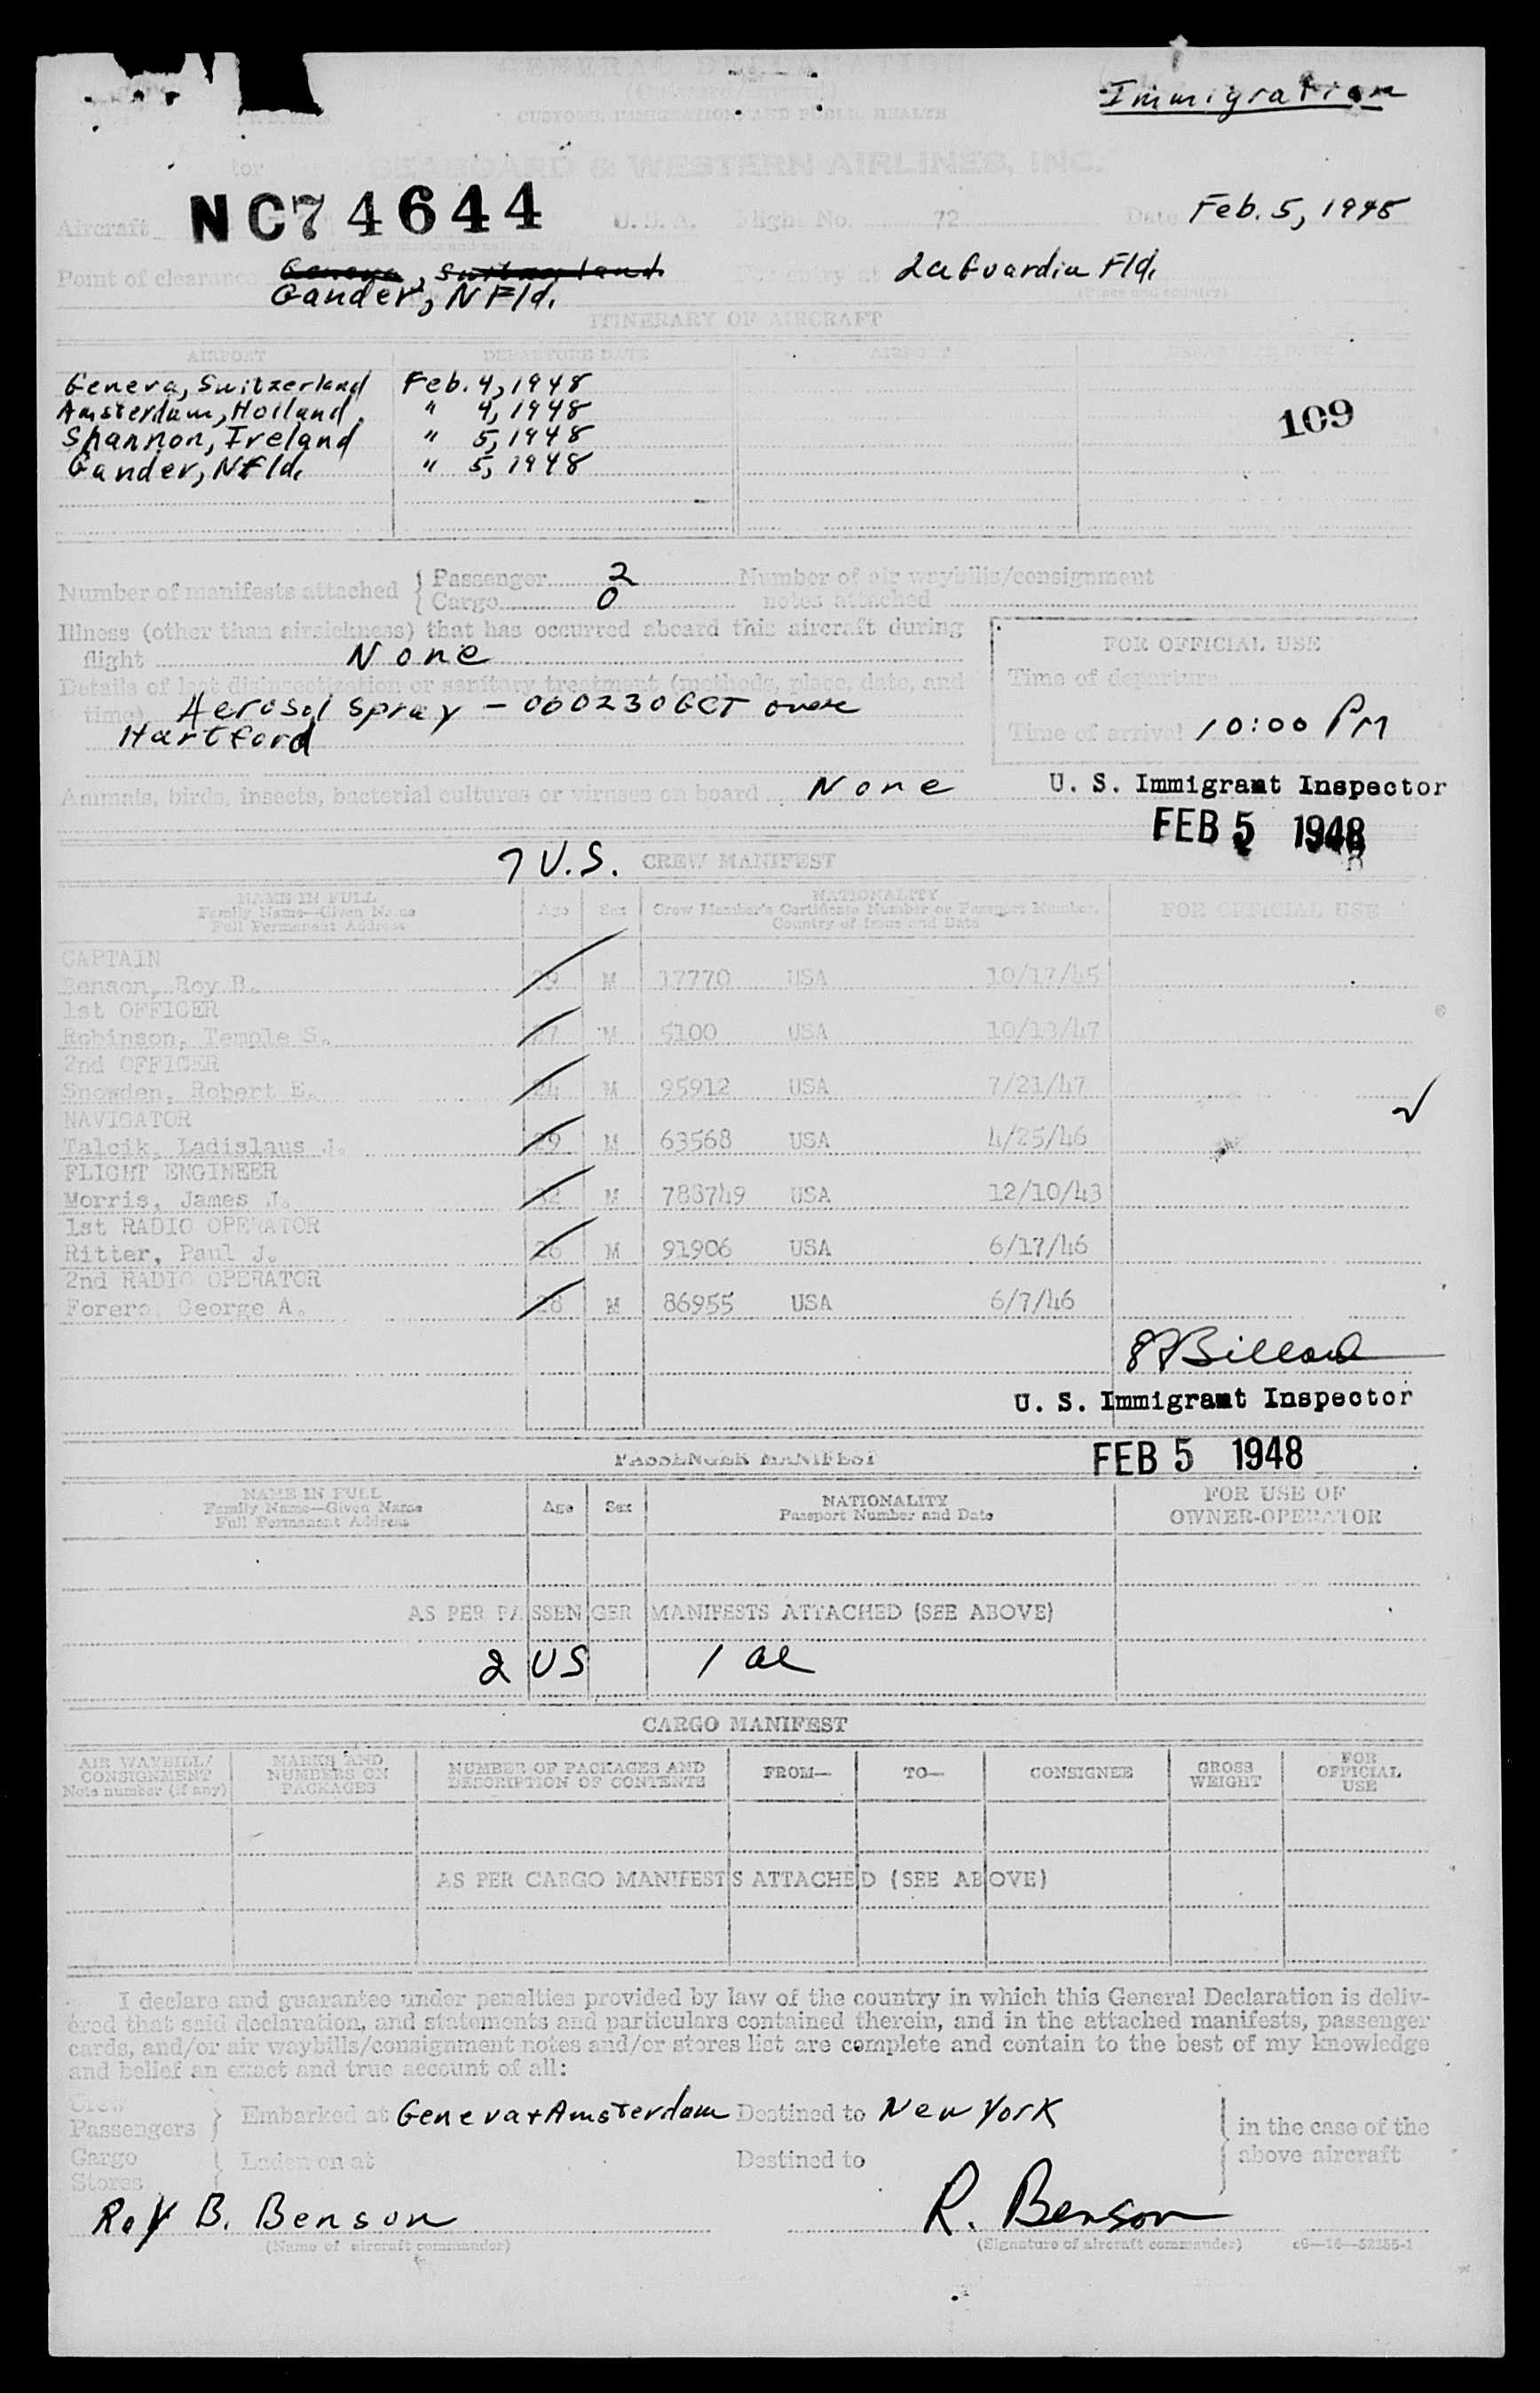 GENERAL DECLARATION
(Outward/Inward)
CUSTOMS, IMMIGRATION, AND PUBLIC HEALTH
Immigration
SEABOARD & WESTERN AIRLINES, INC.
Aircraft NC74644 U.S.A. Flight No. 72 Date Feb. 5, 1948
Point of clearance Geneva, Switzerland For entry at LaGuardia Fld.
Gander, NFld. (Place and country)
ITINERARY OF AIRCRAFT
AIRPORT DEPARTURE DATE AIRPORT
Geneva, Switzerland Feb. 4, 1948
Amsterdam, Holland " 4, 1948
109
Shannon, Ireland " 5, 1948
Gander, NFld. " 5, 1948
Number of manifests attached { Passenger 2 Number of air waybills/consignment
Cargo 0 notes attached
Illness (other than airsickness) that has occurred aboard this aircraft during
flight None
FOR OFFICIAL USE
Time of departure
Details of last disinsectization or sanitary treatment (methods, place, date, and
time) Aerosol Spray - 060230GCT over
Hartford
Time of arrival 10:00 PM
Animals, birds, insects, bacterial cultures or viruses on board None
U. S. Immigrant Inspector
FEB 5 1948
7 U.S. CREW MANIFEST
NAME IN FULL
Family Name—Given Name
Full Permanent Address
Age Sex
NATIONALITY
Crew Member's Certificate Number or Passport Number,
Country of Issue and Date
FOR OFFICIAL USE
CAPTAIN
Benson, Roy B. 29 M 17770 USA 10/17/45
1st OFFICER
Robinson, Temple S. 27 M 5100 USA 10/13/47
2nd OFFICER
Snowden, Robert E. 24 M 95912 USA 7/21/47
NAVIGATOR
Talcik, Ladislaus J. 29 M 63568 USA 4/25/46
FLIGHT ENGINEER
Morris, James J. 32 M 788749 USA 12/10/43
1st RADIO OPERATOR
Ritter, Paul J. 26 M 91906 USA 6/17/46
2nd RADIO OPERATOR
Forero, George A. 28 M 86955 USA 6/7/46
U. S. Immigrant Inspector
FEB 5 1948
PASSENGER MANIFEST
NAME IN FULL
Family Name—Given Name
Full Permanent Address
Age Sex
NATIONALITY
Passport Number and Date
FOR USE OF
OWNER-OPERATOR
AS PER PASSENGER MANIFESTS ATTACHED (SEE ABOVE)
2 US 1 al
CARGO MANIFEST
AIR WAYBILL/
CONSIGNMENT
Note number (if any)
MARKS AND
NUMBERS ON
PACKAGES
NUMBER OF PACKAGES AND
DESCRIPTION OF CONTENTS
FROM— TO— CONSIGNEE
GROSS
WEIGHT
FOR
OFFICIAL
USE
AS PER CARGO MANIFESTS ATTACHED (SEE ABOVE)
I declare and guarantee under penalties provided by law of the country in which this General Declaration is deliv-
ered that said declaration, and statements and particulars contained therein, and in the attached manifests, passenger
cards, and/or air waybills/consignment notes and/or stores list are complete and contain to the best of my knowledge
and belief an exact and true account of all:
Crew
Passengers } Embarked at Geneva + Amsterdam Destined to New York
in the case of the
above aircraft
Cargo
Stores { Laden on at Destined to
Roy B. Benson R. Benson
(Name of aircraft commander) (Signature of aircraft commander) c6—16—52255-1